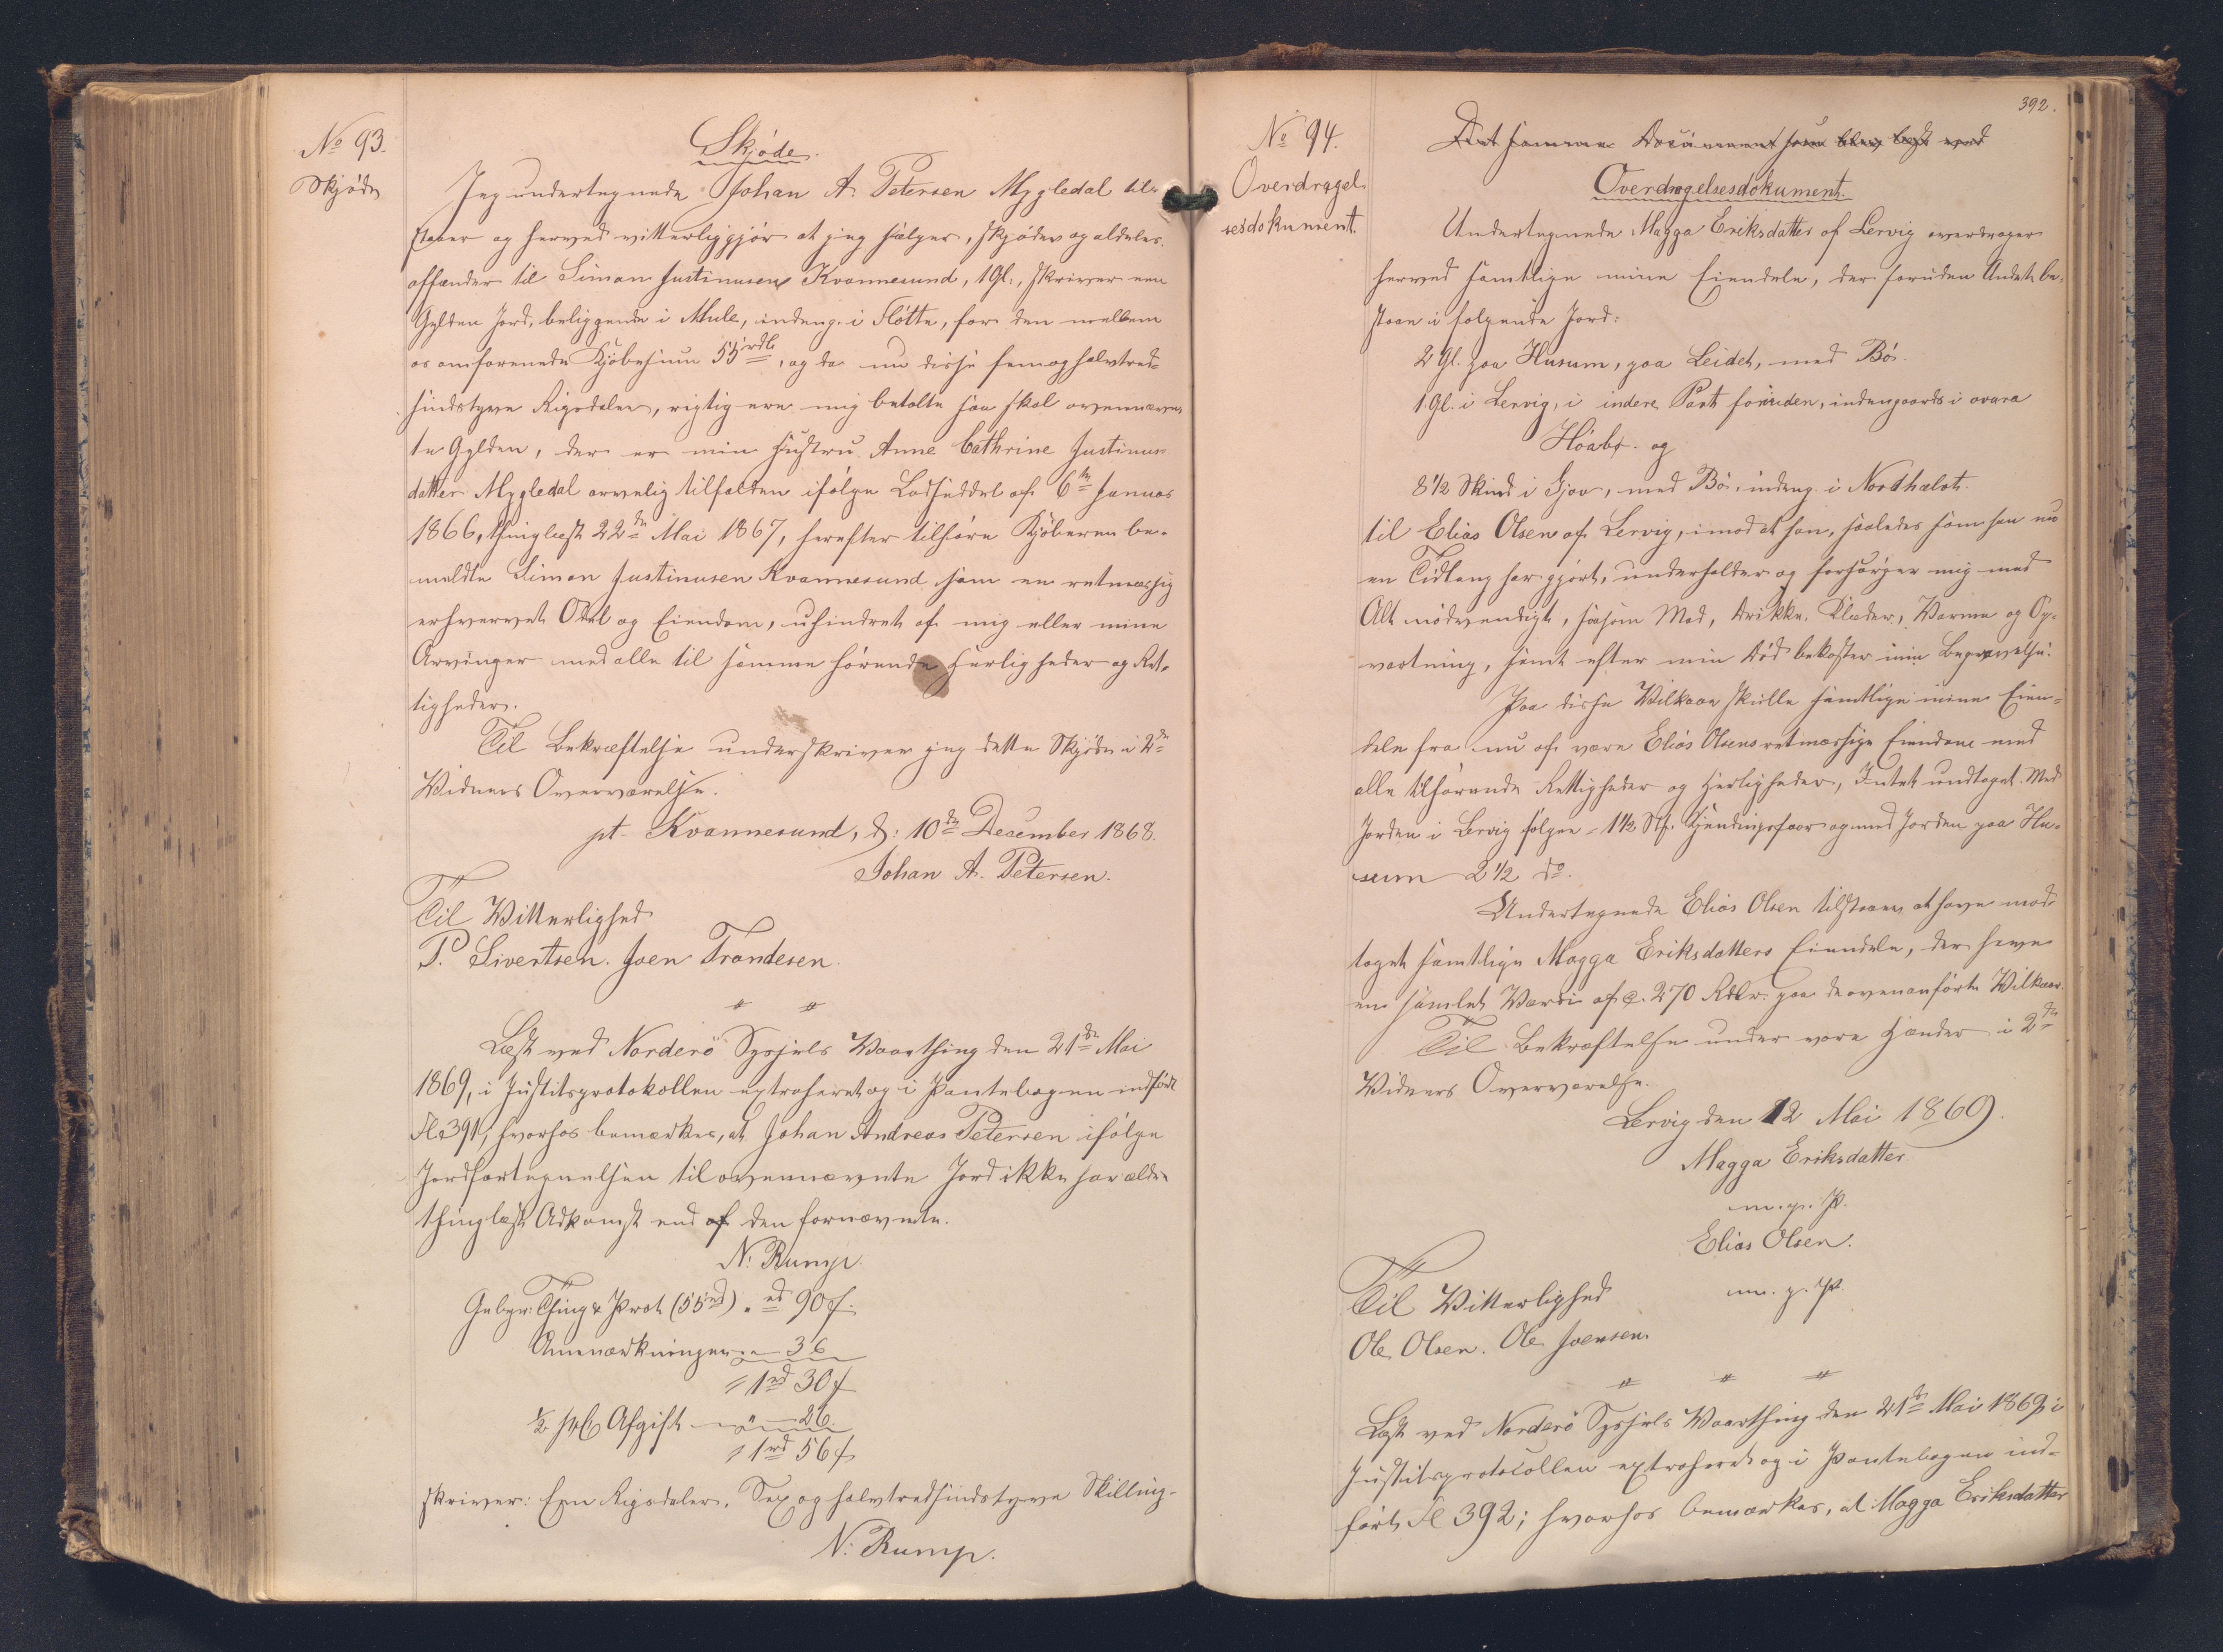 No 93.
Skjøde
Skjøde.
Jeg undertegnede Johan A. Petersen Mygledal til-
staaer og herved vitterliggjør at jeg sælger, skjøder og aldeles
afhænder til Simon Justinusen Kvannesund, 1 Gl., skriver een
Gylden Jord, beliggende i Mule, indeng. i Flótte, for den mellem
os omforenede Kjøbesum 55 rdl, og da nu disse femoghalvtred-
sindstyve Rigsdaler, rigtig ere mig betalte saa skal ovennævn-
te Gylden, der er min Hustru Anne Cathrine Justinus-
datter Mygledal arvelig tilfalden ifølge Lodseddel af 6te Januar
1866, thinglæst 22de Mai 1867, herefter tilhøre Kjøberen be-
meldte Simon Justinusen Kvannesund som en retmæssig
erhvervet Odel og Eiendom, uhindret af mig eller mine
Arvinger med alle til samme hørende Herligheder og Ret-
tigheder.
Til Bekræftelse underskriver jeg dette Skjøde i 2de
Vidners Overværelse.
pt. Kvannesund, d: 10de December 1868.
Johan A. Petersen.
Til Vitterlighed
P. Sivertsen. Joen Trondesen.
Læst ved Norderø Syssels Vaarthing den 21de Mai
1869, i Justitsprotokollen extraheret og i Pantebogen indført
Fl 391, hvorhos bemærkes, at Johan Andreas Petersen ifølge
Jordfortegnelsen til ovennævnte Jord ikke har ældre
thinglæst Adkomst end af den fornævnte.
N. Rump.
Gebyr: Thing & Prot (55 rd) " rd 90 ſ.
Anmærkningen " - 36
= 1 rd 30 ſ
½ pCt Afgift - " - 26.
= 1 rd 56 ſ
skriver: Een Rigsdaler, Sex og halvtredsindstyve Skilling.
N: Rump.
392.
No 94.
Overdragel-
sesdokument.
Det samme Document som blev læst ved
Overdragelsesdokument.
Undertegnede Magga Eriksdatter af Lervig overdrager
herved samtlige mine Eiendele, der foruden Andet be-
staae i følgende Jord:
2 Gl. paa Husum, paa Leidet, med Bó.
1 Gl. i Lervig, i indere Part foruden, indengaards i ovara
Hóabø. og
8 1/2 Skind i Gjov, med Bó, indeng. i Nordhalvt.
til Elias Olsen af Lervig, imod at han, saaledes som han nu
en Tidlang har gjort, underholder og forsørger mig med
Alt nødvendigt, saasom Mad, Drikke, Klæder, Varme og Op-
vartning, samt efter min Død bekoster min Begravelse.
Paa disse Vilkaar skulle samtlige mine Eien-
dele fra nu af være Elias Olsens retmæssige Eiendom med
alle tilhørende Rettigheder og Herligheder, Intet undtaget. Med
Jorden i Lervig følger = 1 1/2 Stk. Hjendingsfaar og med Jorden paa Hu-
sum 2 1/2 do.
Undertegnede Elias Olsen tilstaaer at have mod-
taget samtlige Magga Eriksdatters Eiendele, der have
en samlet Værdi af c. 270 Rdlr. paa de ovenanførte Vilkaar.
Til Bekræftelse under vore Hænder i 2de
Vidners Overværelse.
Lervig den 12 Mai 1869.
Magga Eriksdatter
m. p. P.
Elias Olsen.
m. p. P.
Til Vitterlighed
Ole Olsen. Ole Joensen.
Læst ved Norderø Syssels Vaarthing den 21de Mai 1869, i
Justitsprotocollen extraheret og i Pantebogen ind-
ført Fl 392; hvorhos bemærkes, at Magga Eriksdatter